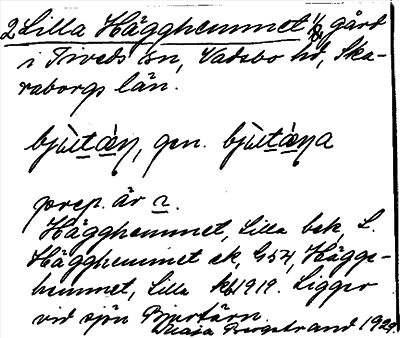 2 Lilla Hägghemmet 1/8 gård
i Tiveds sn, Vadsbo hd, Ska-
raborgs län.
bjù̀tæ̀ɳ, gen. bjùtæ̀ɳa
prep. är
Hägghemmet, Lilla bek, L.
Hägghemmet ek G 54, Hägge-
hemmet, Lilla kb 1919. Ligger
vid sjön Bjurtärn.
Maja Bergstrand 1929.